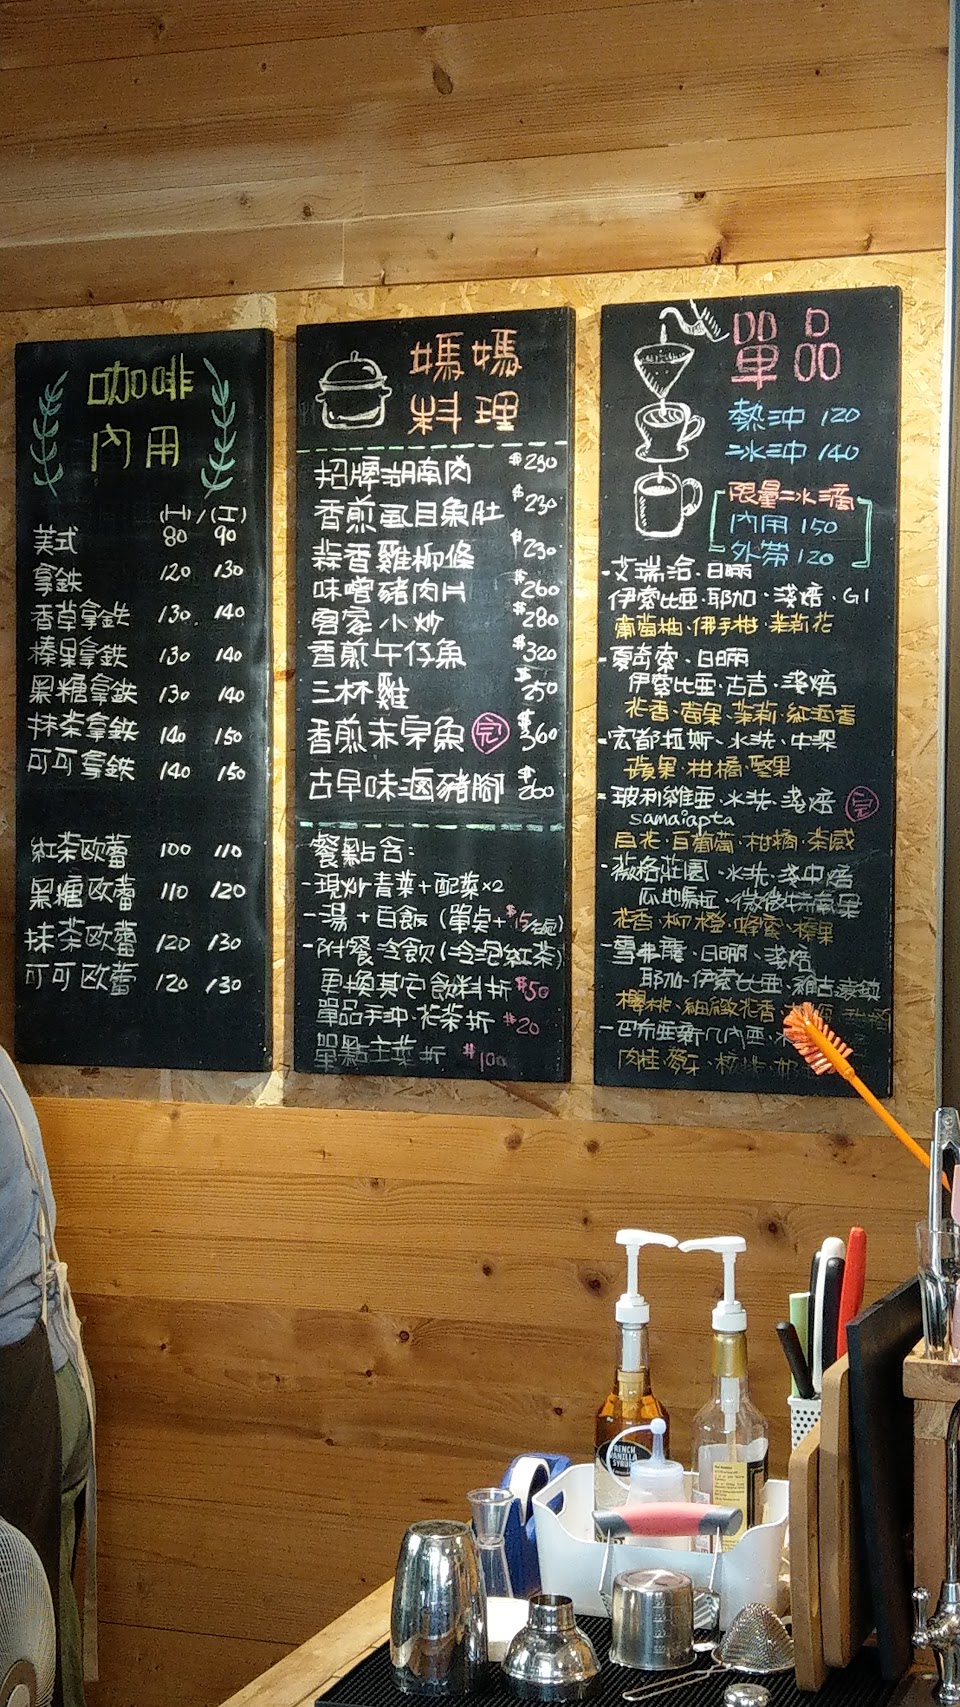 咖啡
內用
(I)/(H)
美式 80 90
拿鉄 120 130
香草拿鉄 130 140
榛果拿鉄 130 140
黑糖拿鉄 130 140
抹茶拿鉄 140 150
可可拿鉄 140 150
紅茶欧蕾 100 110
黑糖欧蕾 110 120
抹茶欧蕾 120 130
可可欧蕾 120 130
媽媽
料理
招牌湖南肉 $230
香煎虱目魚肚 $230
蒜香雞柳條 $230
味噌豬肉片 $260
客家小炒 $280
香煎午仔魚 $320
三杯雞 $250
香煎赤宗魚 完 $360
古早味滷豬腳
餐點含:
-現炒青菜+配菜x2
-湯+白飯(單點+$15/碗)
-附餐冷飲(冷泡紅茶)
更換其它飲料折$50
單品手沖·花茶折$20
單點主菜折 $100
單品
熱沖 120
冰沖 140
限量冰滴
內用 150
外帶 120
-艾瑞洽·日曬
伊索比亞·耶加·淺焙·G1
葡萄柚·佛手柑·茉莉花
-夏奇索·日曬
伊索比亞·古吉·淺焙
花香·莓果·茉莉·紅酒香
-宏都拉斯·水洗·中深
蘋果·柑橘·堅果
-玻利維亞·水洗·淺焙 完
samaiapta
白花·白葡萄·柑橘·茶感
-薇格莊園·水洗·淺中焙
瓜地馬拉·微微特南果
花香·柳橙·蜂蜜·榛果
-雪弗龍·日曬·淺焙
耶加·伊索比亞
櫻桃·細緻花香
-巴布亞新几內亞
肉桂·麥芽
FRENCH
VANILLA
SYRUP